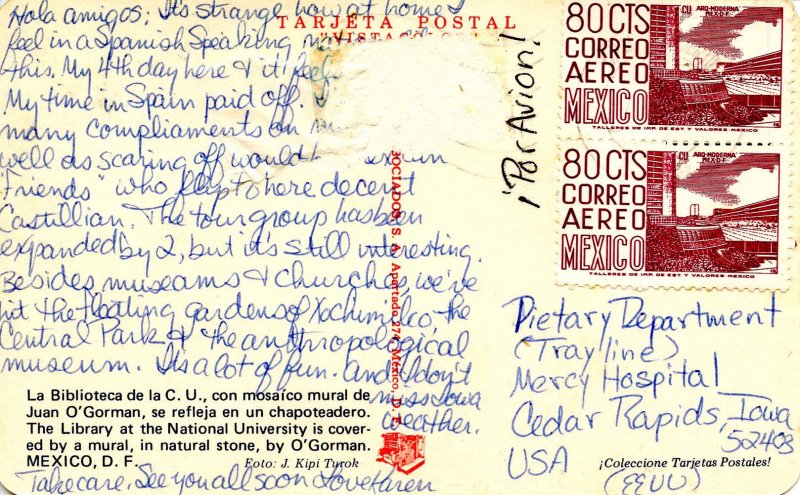 Hola amigos; It's strange how at home I
feel in a Spanish Speaking
this. My 4th day here & it
My time in Spain paid off.
many compliaments on
well as scaring off would
"friends" who flip to here decent
Castillian. The tour group has been
expanded by 2, but it's still interesting.
Besides museams & churches, we've
hit the floating gardens of Xochimilco, the
Central Park & the anthropological
museum. It's a lot of fun. And I don't
miss Iowa
weather.
Take care. See you all soon Love Karen
TARJETA POSTAL
La Biblioteca de la C. U., con mosaíco mural de
Juan O'Gorman, se refleja en un chapoteadero.
The Library at the National University is cover-
ed by a mural, in natural stone, by O'Gorman.
MEXICO, D. F.
Foto: J. Kipi Turok
OCIADOS, S. A. Apartado 274, México, D. F.
¡Por Avion!
80 CTS
CORREO
AEREO
MEXICO
CU ARQ-MODERNA
MEX-D-F
TALLERES DE IMP. DE EST. Y VALORES MEXICO
80 CTS
CORREO
AEREO
MEXICO
CU ARQ-MODERNA
MEX-D-F
TALLERES DE IMP. DE EST. Y VALORES MEXICO
Dietary Department
(Tray line)
Mercy Hospital
Cedar Rapids, Iowa
52403
USA
(EEUU)
¡Coleccione Tarjetas Postales!